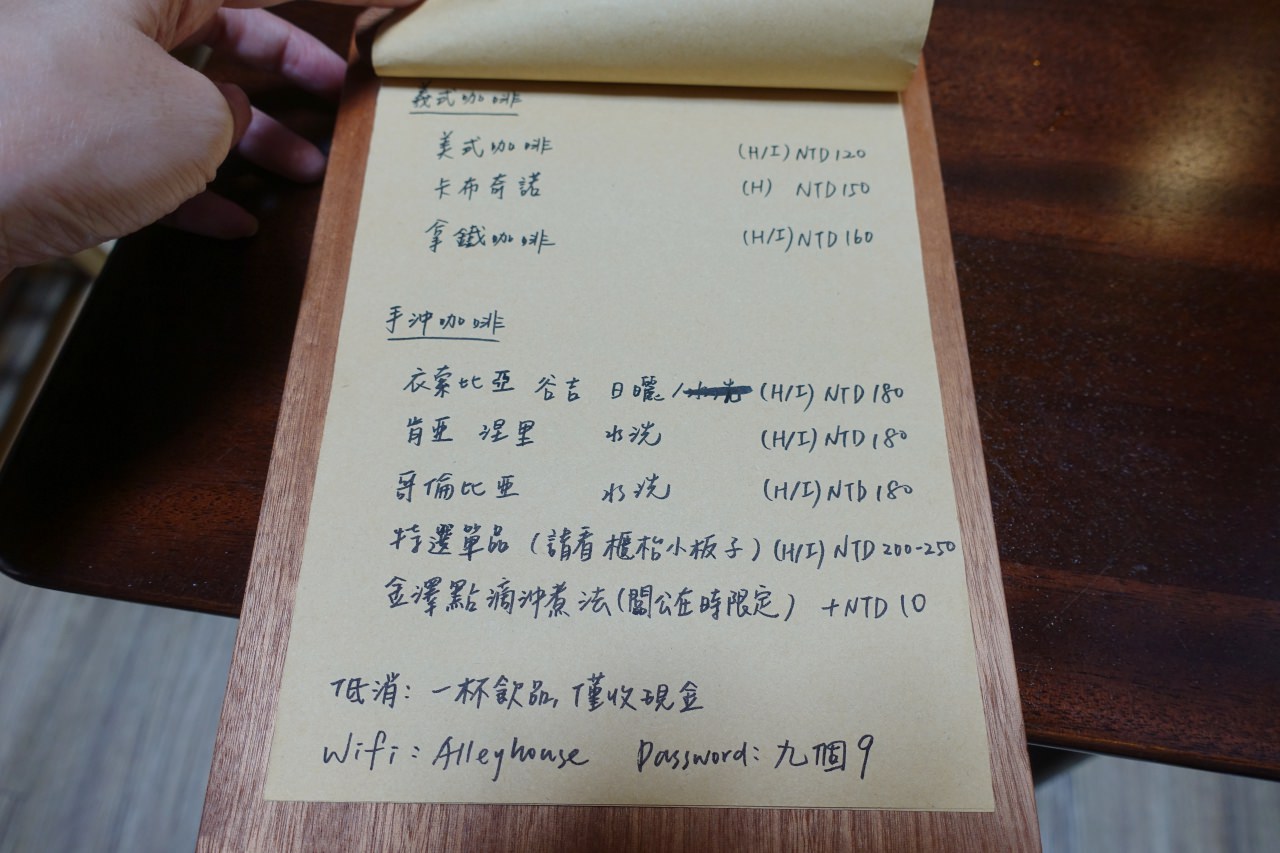 義式咖啡
美式咖啡 (H/I) NTD 120
卡布奇諾 (H) NTD 150
拿鐵咖啡 (H/I) NTD 160
手沖咖啡
衣索比亞 谷吉 日曬/水洗 (H/I) NTD 180
肯亞 涅里 水洗 (H/I) NTD 180
哥倫比亞 水洗 (H/I) NTD 180
特選單品 (請看櫃枱小板子) (H/I) NTD 200-250
金澤點滴沖煮法(闆公在時限定) +NTD 10
低消: 一杯飲品, 僅收現金
Wifi: Alleyhouse Password: 九個9